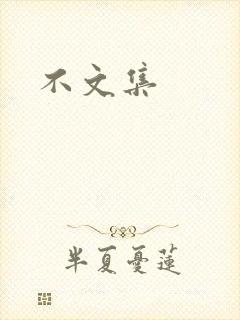 不文集
半夏憂蓮